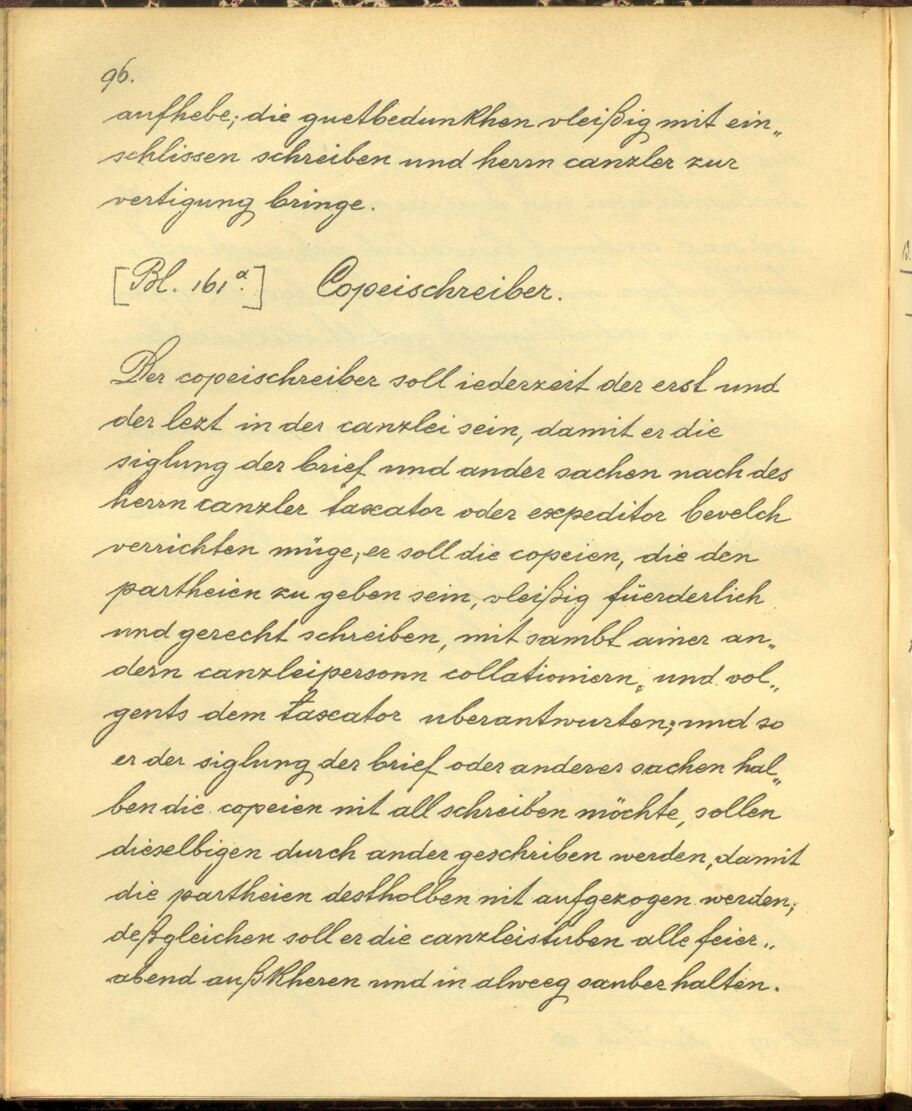 96.
aufhebe; die guetbedunkhen vleißig mit ein„
schlissen schreiben und herrn canzler zur
vertigung bringe.
[Bl. 161a.] Copeischreiber.
Der copeischreiber soll iederzeit der erst und
der lezt in der canzlei sein, damit er die
siglung der brief und ander sachen nach des
herrn canzler taxator oder expeditor bevelch
verrichten müge; er soll die copeien, die den
partheien zu geben sein, vleißig füerderlich
und gerecht schreiben, mit sambt ainer an„
dern canzleipersonn collationiern, und vol„
gents dem taxator uberantwurten; und so
er der siglung der brief oder anderer sachen hal„
ben die copeien nit all schreiben möchte, sollen
dieselbigen durch ander geschriben werden, damit
die partheien desthalben nit aufgezogen werden;
deßgleichen soll er die canzleistuben alle feier„
abend außkheren und in alweeg sauber halten.